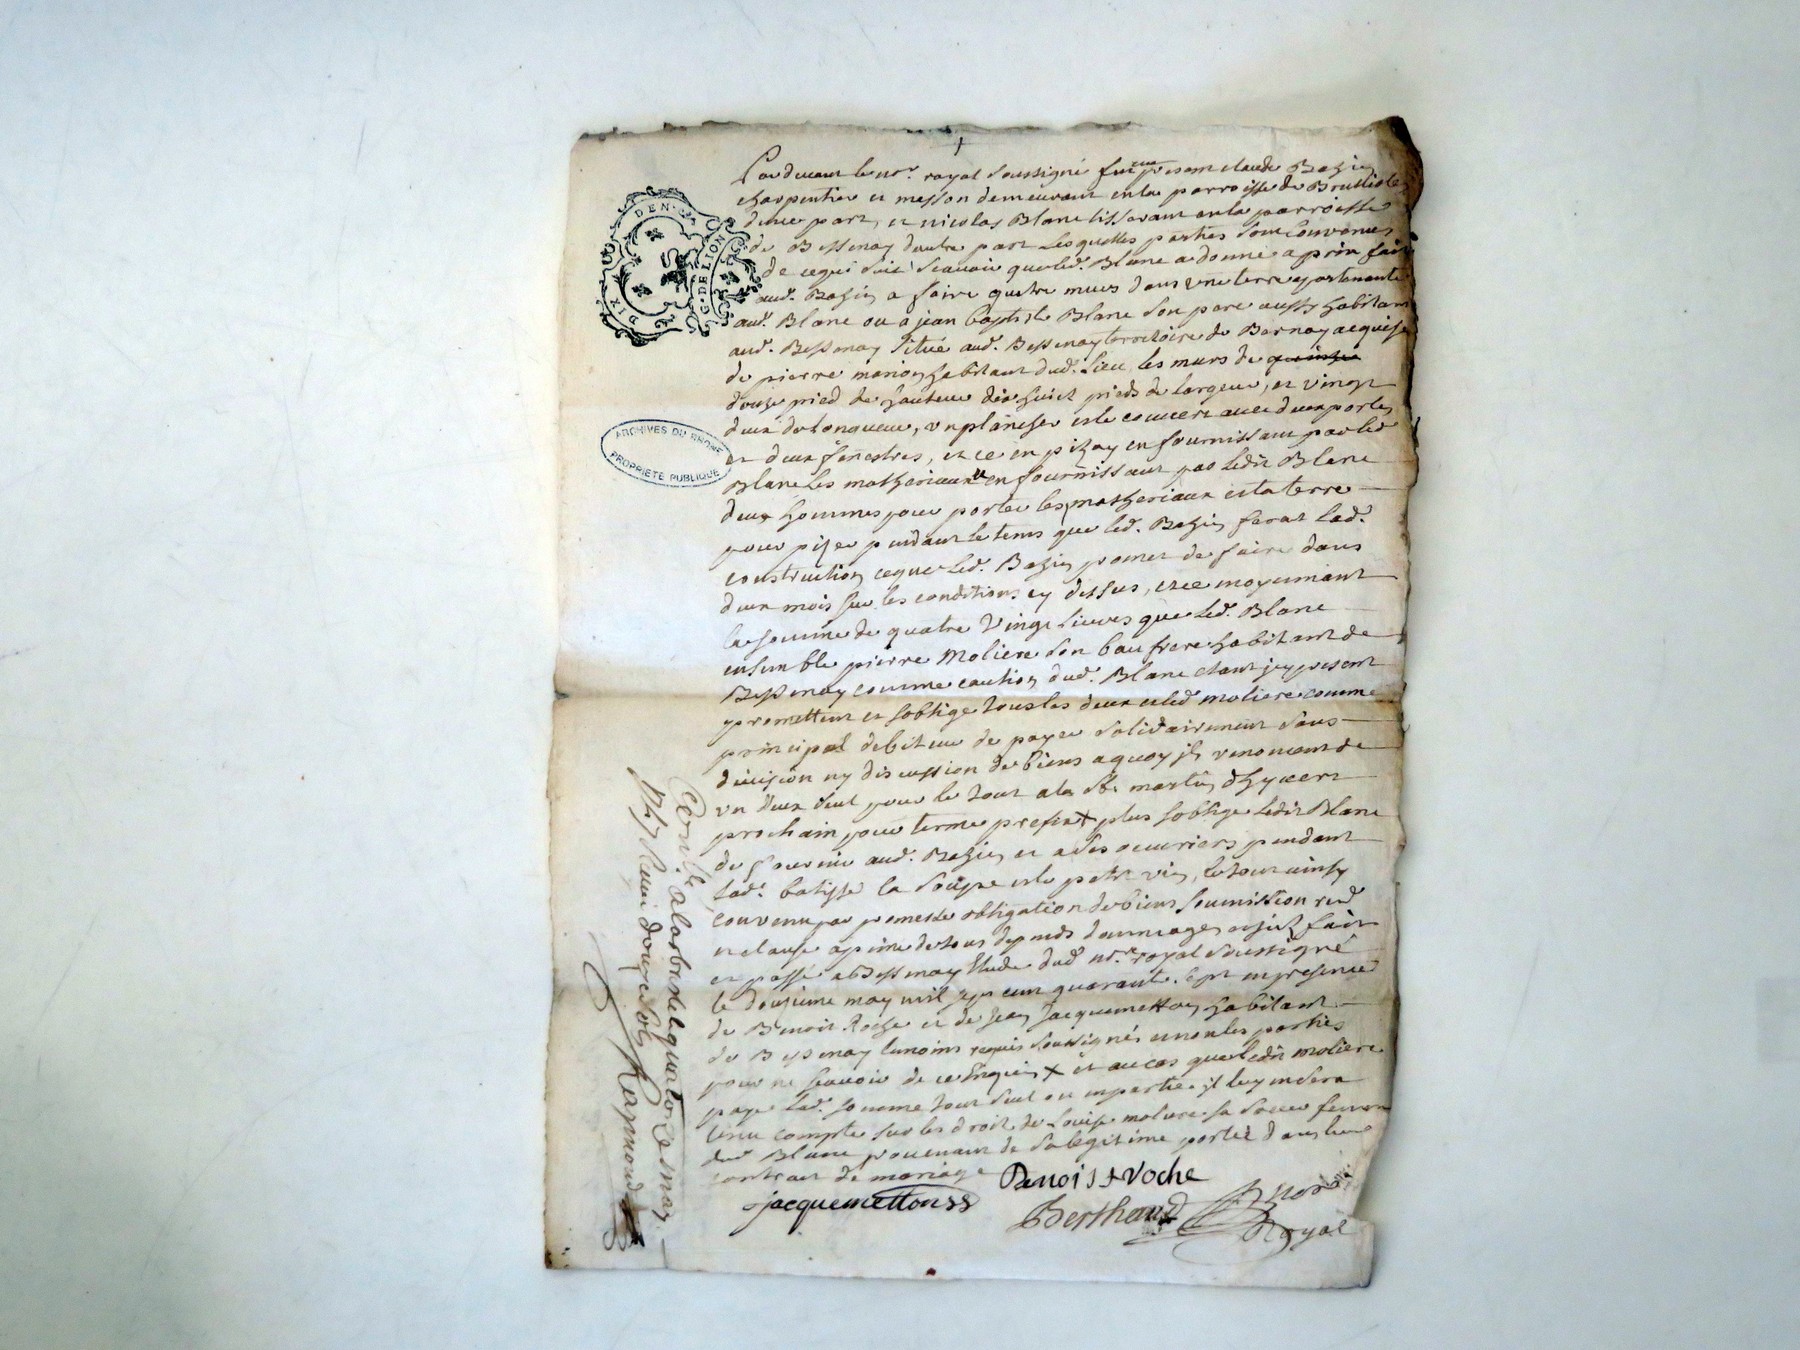 Pardevant le nore. royal soussigné fut present claude Bazin
charpentier et masson demeurant en la parroisse de Brussieles
d'une part, et nicolas Blanc tisserant en la parroisse
de Bessenay d'autre part lesquelles parties sont convenues
de ce qui suit scavoir que led. Blanc a donné a prix fait
aud. Bazin a faire quatre murs dans une terre apartenante
aud. Blanc ou a jean baptiste Blanc son pere aussy habitant
aud. Bessenay situé aud. Bessenay territoire de Barnay acquise
de pierre marion habitant dud. lieu les murs de quinze
douze pied de hauteur dix huict pieds de largeur, et vingt
deux de longueur, un plancher et le couvert avec deux portes
et deux fenestres, et ce en pizay en fournissant par led
Blanc les matheriaux et en fournissant par ledit Blanc
deux hommes pour porter les matheriaux et la terre
pour pizer pendant le tems que led. Bazin ferat lad.
construction ce que led. Bazin promet de faire dans
deux mois sur les conditions cy dessus, et ce moyennant
la somme de quatre vingt livres que led. Blanc
ensemble pierre Moliere son bau frere habitant de
Bessenay comme caution dud. Blanc etant icy present
promettent et soblige tous les deux et led moliere comme
principal debiteur de payer solidairement sans
division ny discussion de biens a quoy ils renoncent
un deux seul pour le tout a la st. martin dhyvert
prochain pour terme prefix + plus soblige ledit Blanc
de fournir aud. Bazin et a ses ouvriers pendant
lad. batisse la soupe et le petit vin, le tout ainsy
convenu par promesse obligation de biens soumission
et clause a peine de tous depends dommages fait
et passé a Bessenay Etude dud nore. royal soussigné
le douzieme may mil sept cent quarante sept en presence
de Benoit Roche et de Jean Jacquemetton habitant
de Bessenay temoins requis soussignés et non les parties
pour ne scavoir de ce Enquis x et au cas que ledit moliere
paye lad. somme tout seul ou en partie il luy en sera
tenu compte sur les droit de Louise moliere sa soeur femme
dud Blanc provenant de sa legitime portée dans leur
contract de mariage
jacquemetton
Benoist Roche
Berthaud
nore.
Royal
Conlé. a larbresle quatorze may
Reçu douze sols Raymond
GEN. DE LION
DIX D
ARCHIVES DU RHONE
PROPRIETE PUBLIQUE